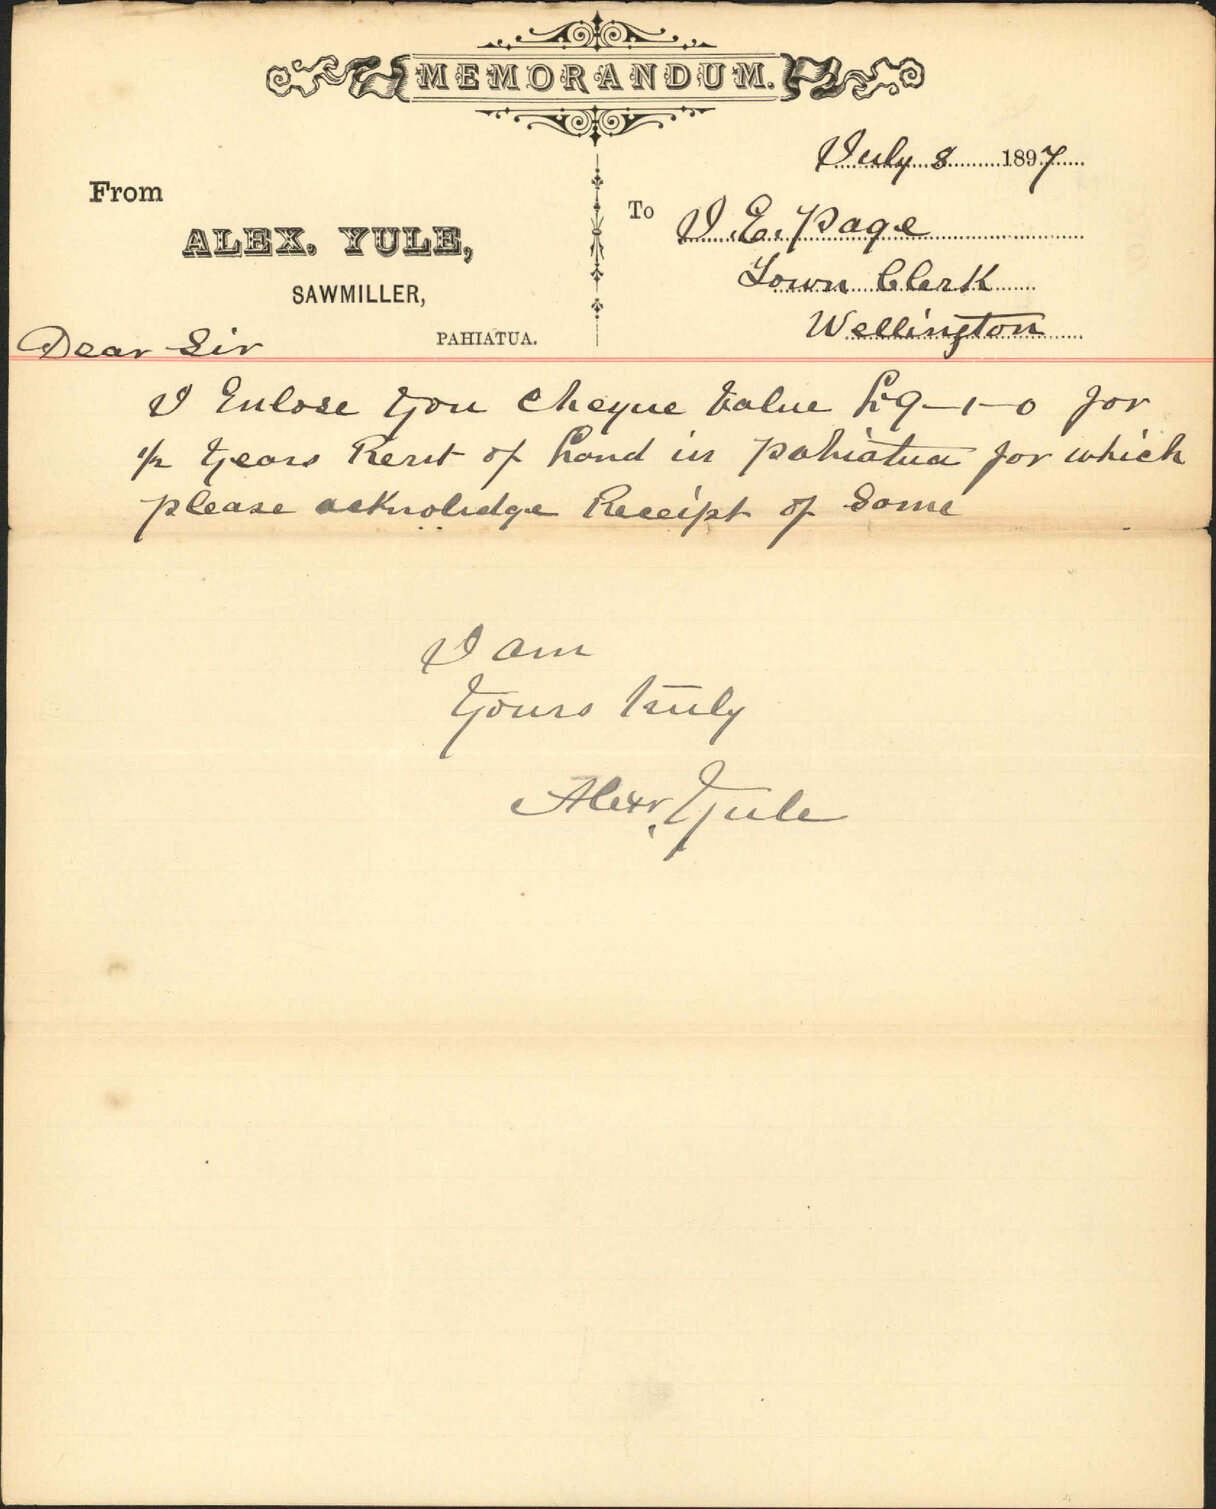 MEMORANDUM.
July 8 1897
From
To J. E. Page
ALEX. YULE,
Town Clerk
SAWMILLER,
Wellington
PAHIATUA.
Dear Sir
I Enlose You Cheque Value £9-1-0 for
1/2 Years Rent of Land in Pahiatua for which
please acknoledge Receipt of Same
I am
Yours truly
Alexr. Yule